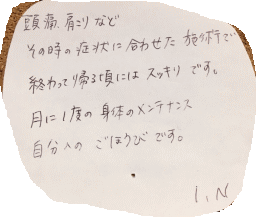 頭痛、肩こりなど
その時の症状に合わせた施術で
終わって帰る頃にはスッキリです。
月に1度の身体のメンテナンス
自分へのごほうびです。
I.N